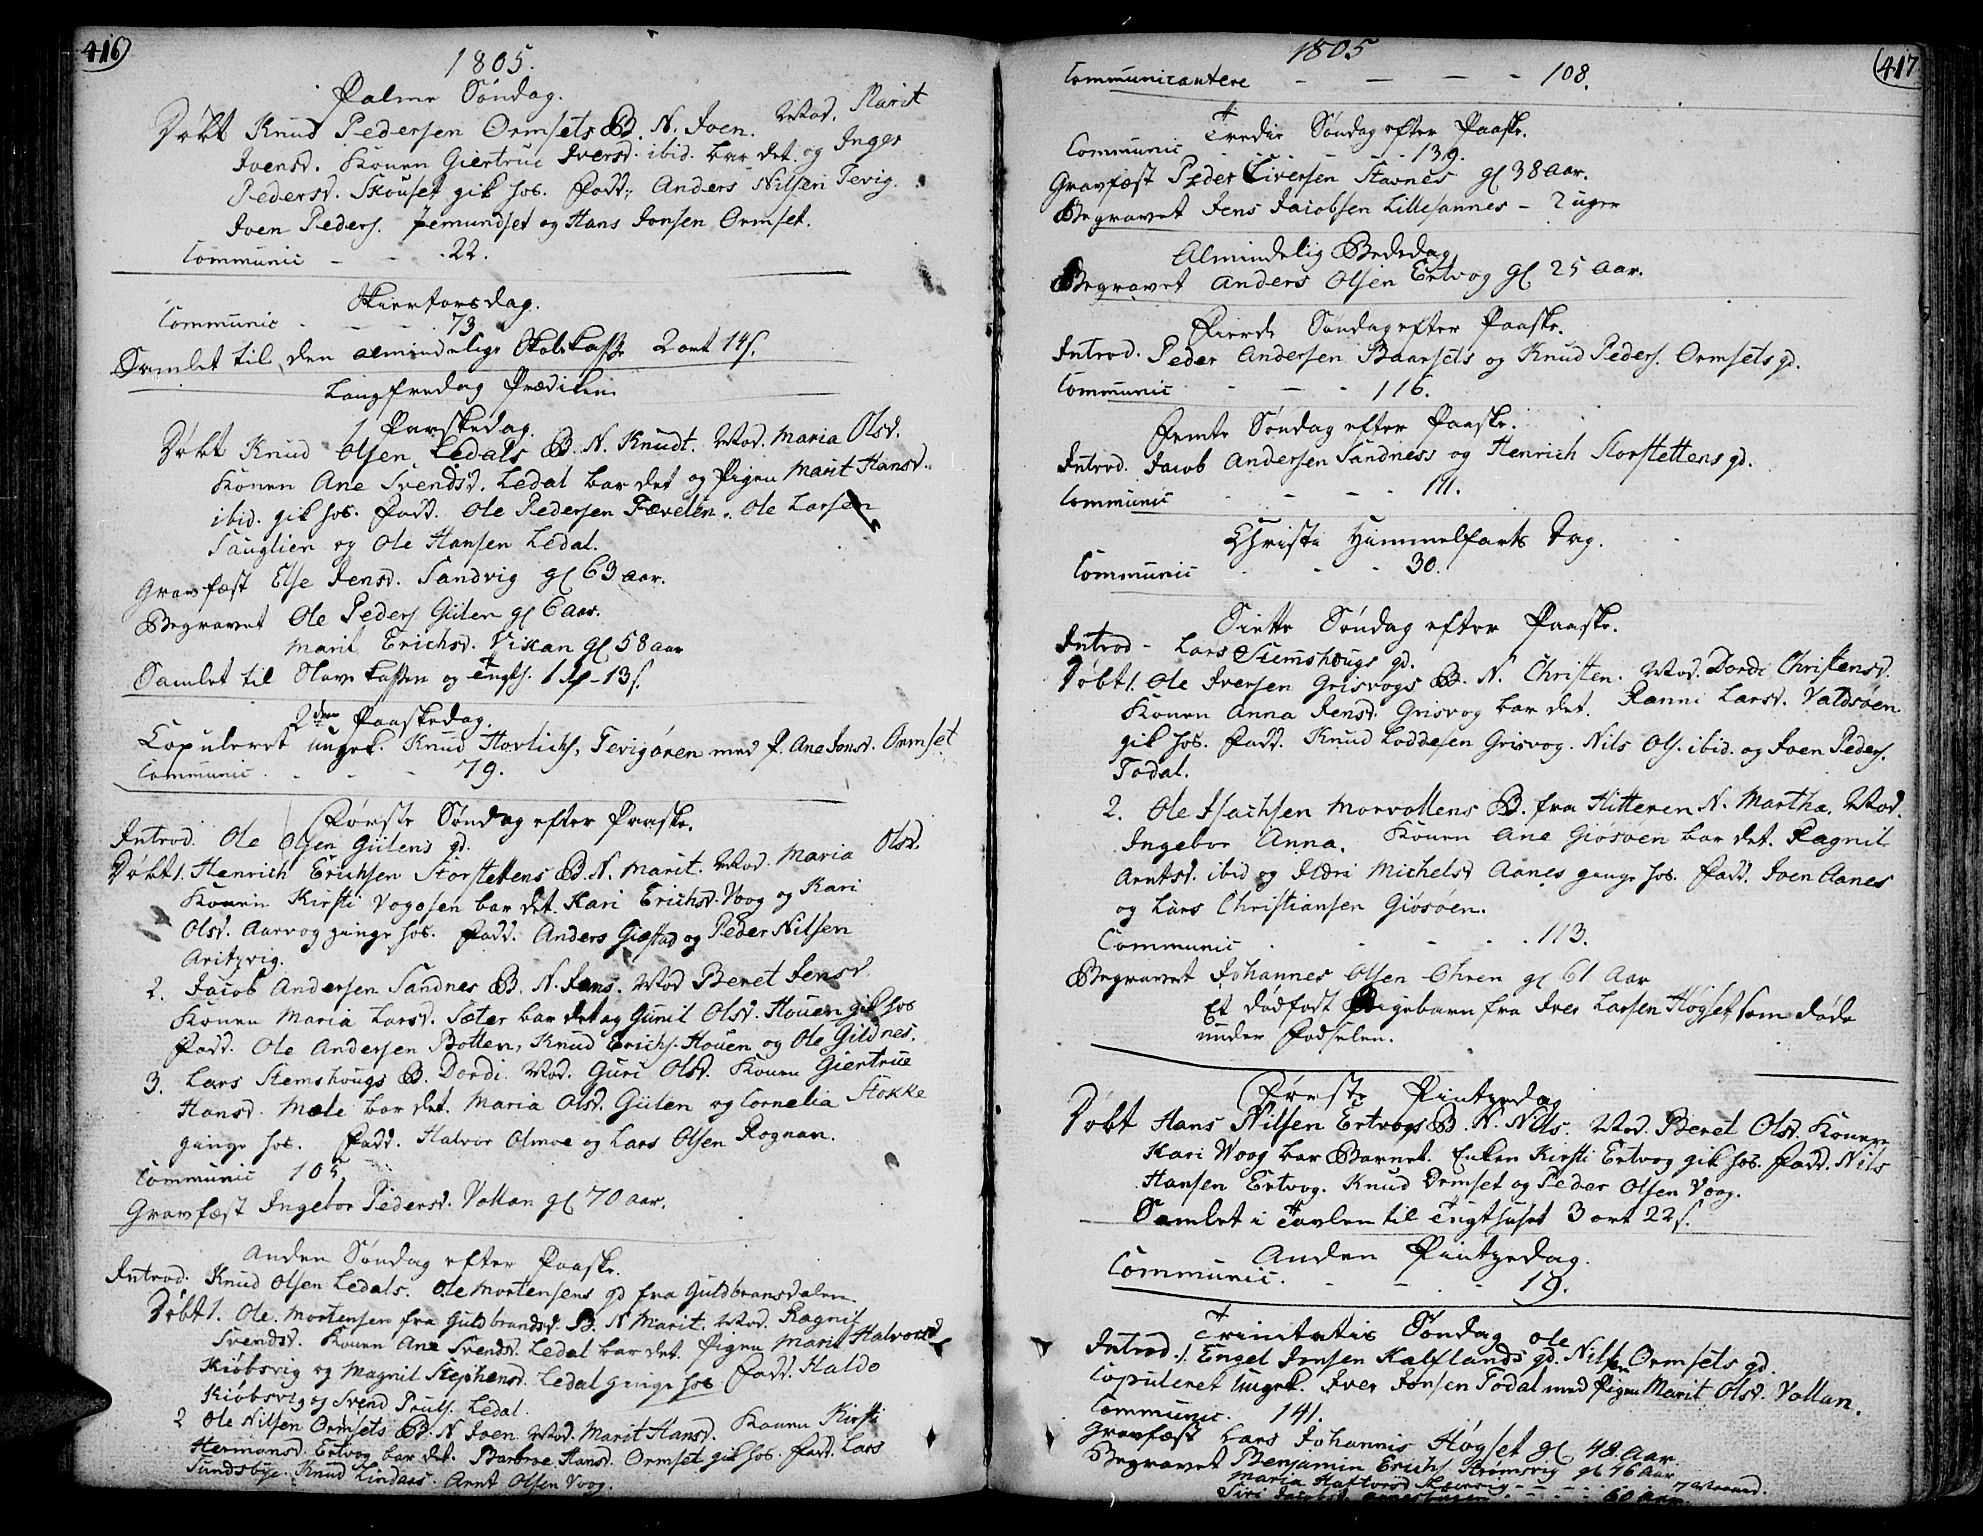 416
1805.
Palme Søndag.
Døbt Knud Pedersen Ormsets B. N. Joen. Mod. Marit
Joensd. Konen Giertrue Iversd. ibid. bar det og Inger
Pedersd. Skouset gik hos. Fadd. Anders Nilsen Tevig.
Joen Peders. Jemundset og Hans Jonsen Ormset.
Communic - - 22.
Skiertorsdag.
Communic - - - 73
Samlet til den almindelige Skolekasse 2 ort 14 s.
Langfredag Prædiken
1 Paaskedag.
Døbt Knud Olsen Ledals B. N. Knudt. Mod. Maria Olsd.
Konen Ane Svendsd. Ledal bar det og Pigen Marit Hansd.
ibid. gik hos. Fadd. Ole Pedersen Fævelen. Ole Larsen
Sauglien og Ole Hansen Ledal.
Gravfæst Else Jensd. Sandvig gl 63 aar.
Begravet Ole Peders. Gülen gl 6 aar.
Marit Erichsd. Vikan gl 58 aar
Samlet til Slave Kassen og Tugts. 1 - 13 s.
2den Paaskedag.
Copuleret ungk. Knud Tevigøren med P. Ane Jonsd. Ormset
Communic. - - - 79.
Første Søndag efter Paaske.
Introd. Ole Olsen Gülens gd.
Døbt 1. Henrich Erichsen Storstettens B. N. Marit. Mod. Maria Olsd.
Konen Kirsti Vogøsen bar det. Kari Erichsd. Voog og Kari
Olsd. Aarvog ginge hos. Fadd. Anders Giestad og Peder Nilsen
Aritzvig.
2. Jacob Andersen Sandnes B. N. Jens. Mod Beret Jensd.
Konen Maria Larsd. Sæter bar det og Gunil Olsd. Houen gik hos
Fadd. Ole Andersen Botten, Knud Erichs. Houen og Ole Gildnes.
3. Lars Stemshougs B. Dordi. Mod. Guri Olsd. Konen Giertrue
Hansd. Mæle bar det. Maria Olsd. Gülen og Cornelia Stokke
ginge hos. Fadd. Halvor Olmoe og Lars Olsen Rognan.
Communic 105.
Gravfæst Ingebor Pedersd. Vollan gl 70 aar.
Anden Søndag efter Paaske.
Introd. Knud Olsen Ledals. Ole Mortensens gd fra Guldbransdalen
Døbt 1. Ole Mortensen fra Guldbrandsd. B. N Marit. Mod. Ragnil
Svendsd. Konen Ane Svendsd. Ledal bar det. Pigen Marit Halvorsd
Kiøbsvig og Magnil Stephensd. Ledal ginge hos Fadd. Haldo
Kiøbsvig og Svend Pouls. Ledal.
2 Ole Nilsen Ormsets B. N Joen. Mod. Marit Hansd. Konen Kirsti
Hermansd. Ertvog bar det. Barbroe Hansd. Ormset gik hos. Fadd. Lars
Sundsbye. Knud Lindaas. Arnt Olsen Voog.
417
1805
Communicantere - - - - 108.
Tredie Søndag efter Paaske.
Communic - - 139.
Gravfæst Peder Siversen Stavnes gl 38 aar.
Begravet Jens Jacobsen Lillesannes - 2 uger
Almindelig Bededag
Begravet Anders Olsen Ertvog gl 25 aar.
Fierde Søndag efter Paaske.
Introd. Peder Andersen Baarsets og Knud Peders. Ormsets gd.
Communic - - - 116.
Femte Søndag efter Paaske.
Introd. Jacob Andersen Sandness og Henrich Storstettens gd.
Communic - - - 111.
Christi Himmelfarts Dag.
Communic - - - 30.
Siette Søndag efter Paaske.
Introd - Lars Stemshougs gd.
Døbt 1. Ole Iversen Grisvogs B. N. Christen. Mod. Dordi Christensd.
Konen Anna Jensd. Grisvog bar det. Ranni Larsd. Valdsøen
gik hos. Fadd. Knud Loddesen Grisvog. Nils Ols. ibid. og Joen Peders.
Todal.
2. Ole Isachsen Morvollens B. fra Hitteren N. Martha. Mod.
Ingebor Anna. Konen Ane Giøsøen bar det. Ragnil
Arntsd. ibid og Ildri Michelsd Aanes ginge hos. Fadd. Joen Aanes
og Lars Christiansen Giøsøen.
Communic - - - 113.
Begravet Johannes Olsen Ohren gl 61 aar
Et dødfødt Pigebarn fra Iver Larsen Høgset, som døde
under Fødselen.
Første Pintzedag
Døbt Hans Nilsen Ertvogs B. N. Nils. Mod. Beret Olsd. Konen
Kari Voog bar Barnet. Enken Kirsti Ertvog gik hos. Fadd. Nils
Hansen Ertvog. Knud Ormset og Peder Olsen Voog.
Samlet i Tavlen til Tugthuset 3 ort 22 s.
Anden Pintzedag.
Communic. - - - 19.
Trinitatis Søndag
Introd. 1. Engel Jonsen Kalflands gd. Ole Nilsen Ormsets gd.
Copuleret Ungk. Iver Jonsen Todal med Pigen Marit Olsd. Vollan.
Communic. 141.
Gravfæst Lars Johannis Høgset gl 48 aar.
Begravet Benjamin Erichs Strømsvig gl 46 aar
Maria - - - - 7 Maaned.
Siri Jacobsd. - - - 60 aar.